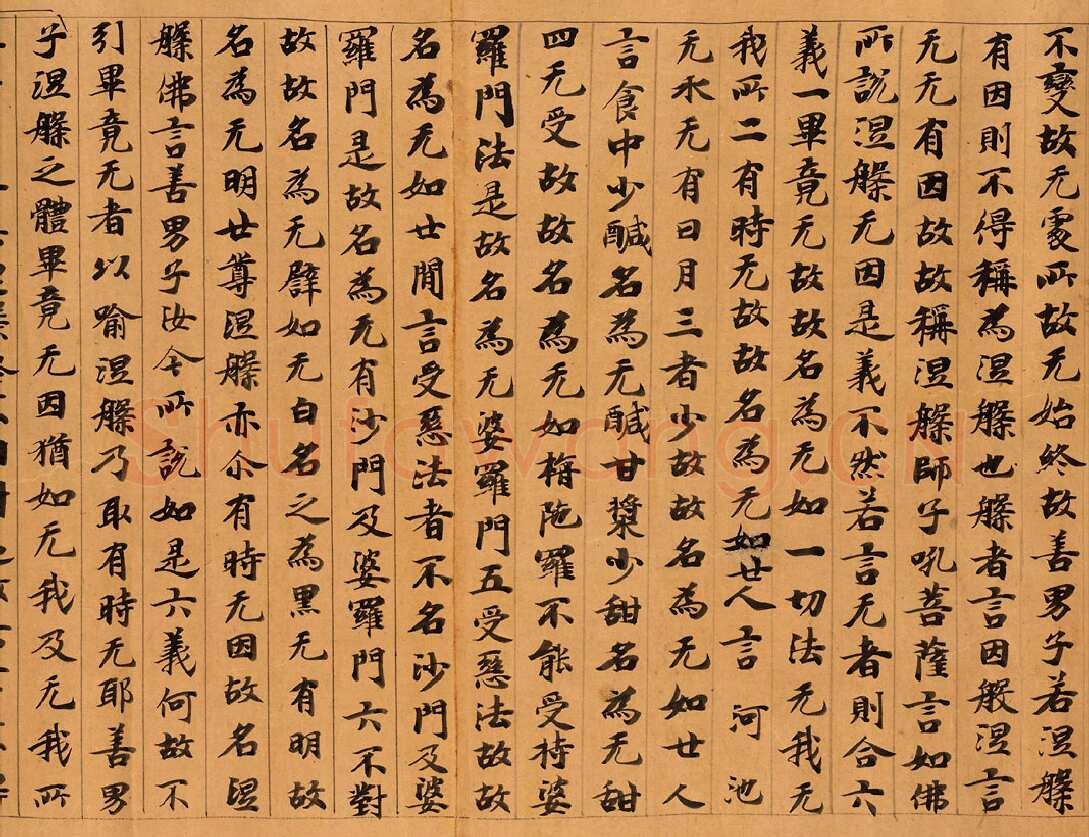 不變故无處所故无始終故善男子若涅槃
有因則不得稱為涅槃也槃者言因般涅言
无无有因故故稱涅槃師子吼菩薩言如佛
所說涅槃无因是義不然若言无者則合六
義一畢竟无故故名為无如一切法无我无
我所二有時无故故名為无如世人言河池
无水无有日月三者少故故名為无如世人
言食中少醎名為无醎甘漿少甜名為无甜
四无受故故名為无如栴陁羅不能受持婆
羅門法是故名為无婆羅門五受惡法故故
名為无如世間言受惡法者不名沙門及婆
羅門是故名為无有沙門及婆羅門六不對
故故名為无譬如无白名之為黑无有明故
名為无明世尊涅槃亦尒有時无因故名涅
槃佛言善男子汝今所說如是六義何故不
引畢竟无者以喻涅槃乃取有時无耶善男
子涅槃之體畢竟无因猶如无我及无我所
Shufawang.CN